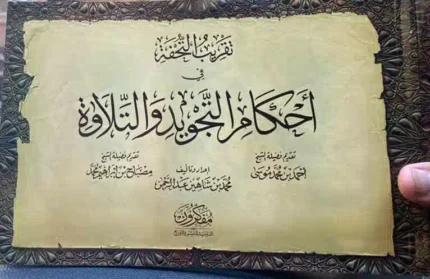 تقريب التحفة
في
أحكام التجويد والتلاوة
تقديم فضيلة الشيخ
أحمد بن محمد موسى
إعداد وتأليف
محمد بن شاهين عبد الرحمن
تقديم فضيلة الشيخ
مصباح بن إبراهيم محمد
مفكرون